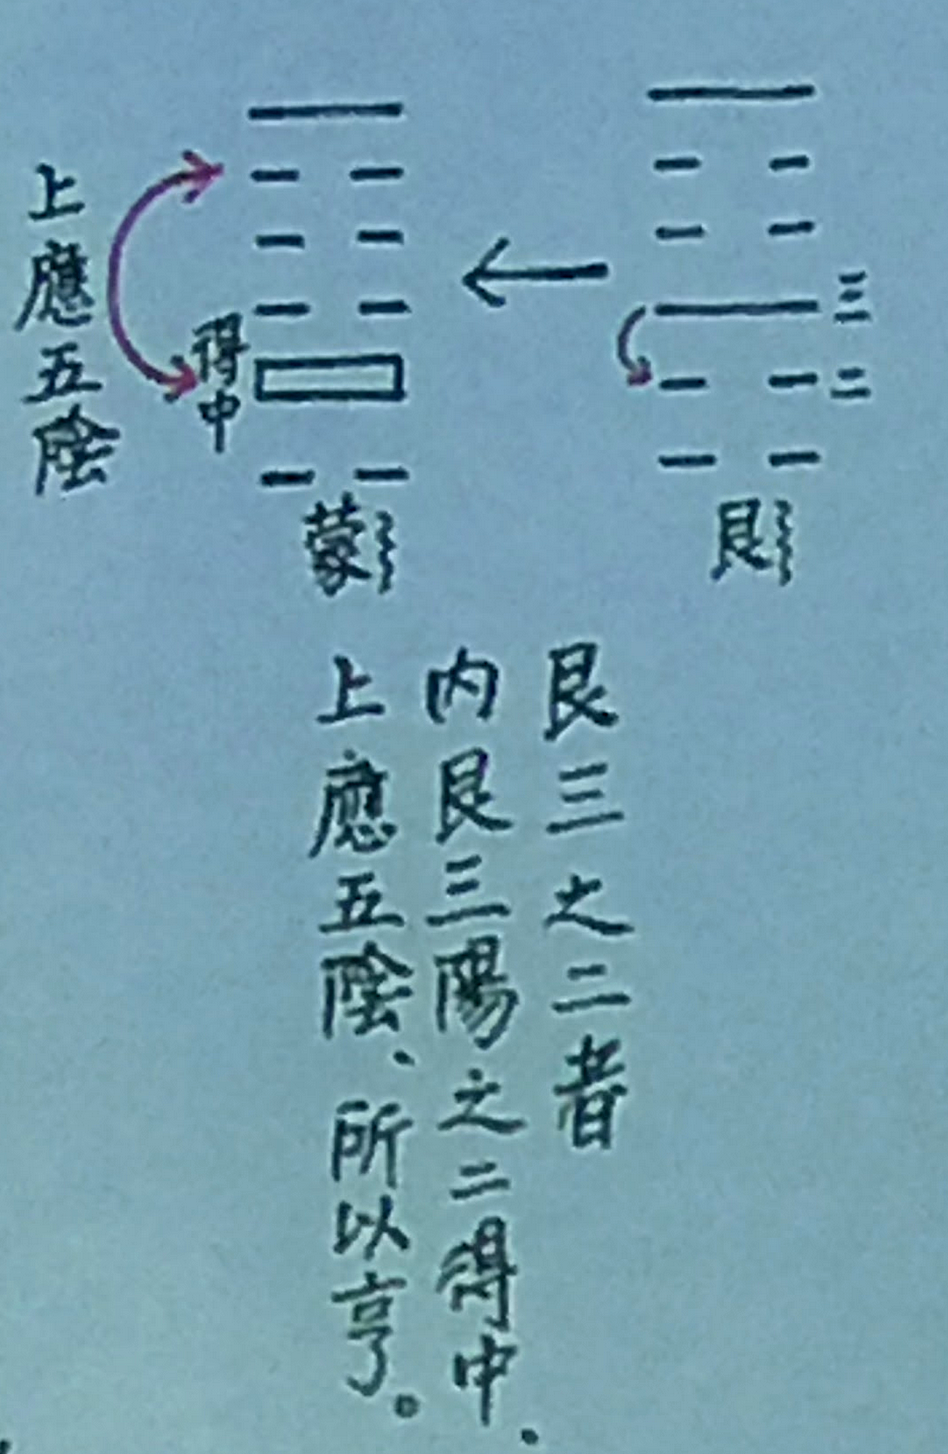 三
二
艮
得中
上應五陰
蒙
艮三之二者
內艮三陽之二得中.
上應五陰、所以亨。